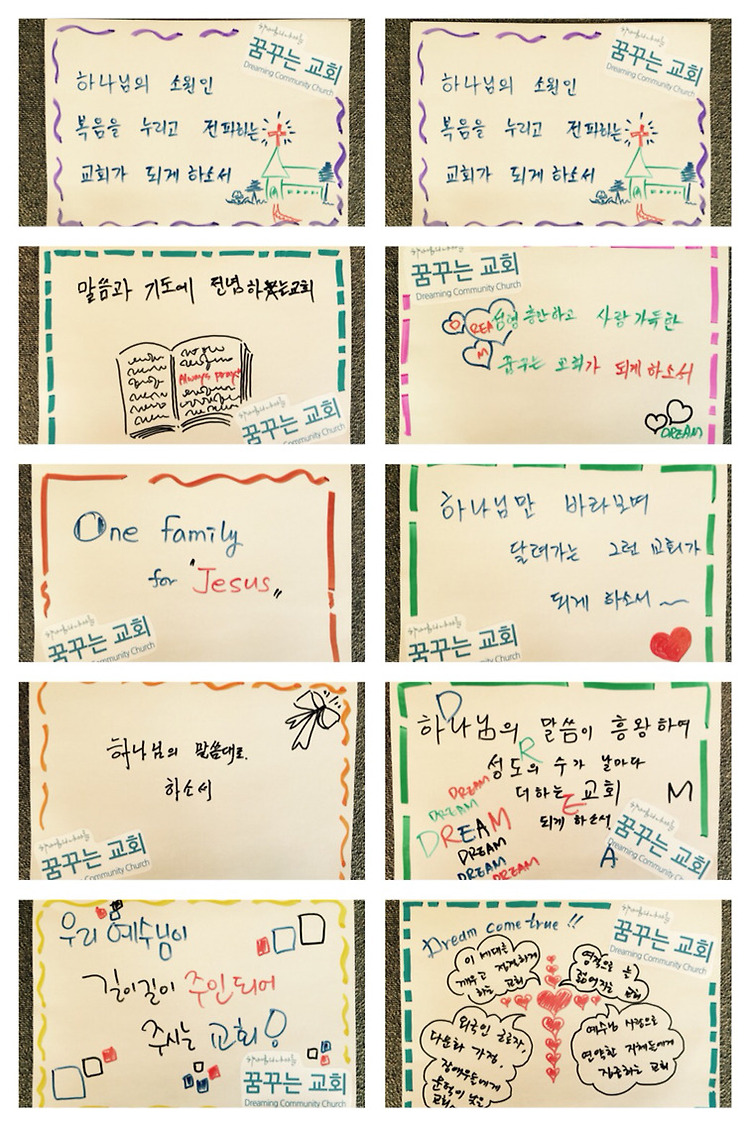 꿈꾸는 교회
Dreaming Community Church
하나님의 소원인
복음을 누리고 전파하는
교회가 되게 하소서
꿈꾸는 교회
Dreaming Community Church
하나님의 소원인
복음을 누리고 전파하는
교회가 되게 하소서
말씀과 기도에 전념하는교회
Always pray
꿈꾸는 교회
Dreaming Community Church
꿈꾸는 교회
Dreaming Community Church
D REA
M
성령 충만하고 사랑 가득한
꿈꾸는 교회가 되게 하소서
DREAM
One family
for "Jesus"
꿈꾸는 교회
Dreaming Community Church
하나님만 바라보며
달려가는 그런 교회가
되게 하소서~
꿈꾸는 교회
Dreaming Community Church
하나님의 말씀대로.
하소서
꿈꾸는 교회
Dreaming Community Church
D
하나님의 말씀이 흥왕하여
R
성도의 수가 날마다
더하는 교회
E
M
되게 하소서.
A
DREAM
DREAM
DREAM
DREAM
DREAM
DREAM
꿈꾸는 교회
Dreaming Community Church
우리 예수님이
길이길이 주인되어
주시는 교회!
꿈꾸는 교회
Dreaming Community Church
Dream come true!!
꿈꾸는 교회
Dreaming Community Church
이 세대를
깨우고 정결하게
하는 교회
영적으로 늘
젊어지는 교회
외국인 근로자,
다문화 가정,
장애우들에게
문턱이 낮은
교회
예수님 사랑으로
연약한 지체들에게
집중하는 교회